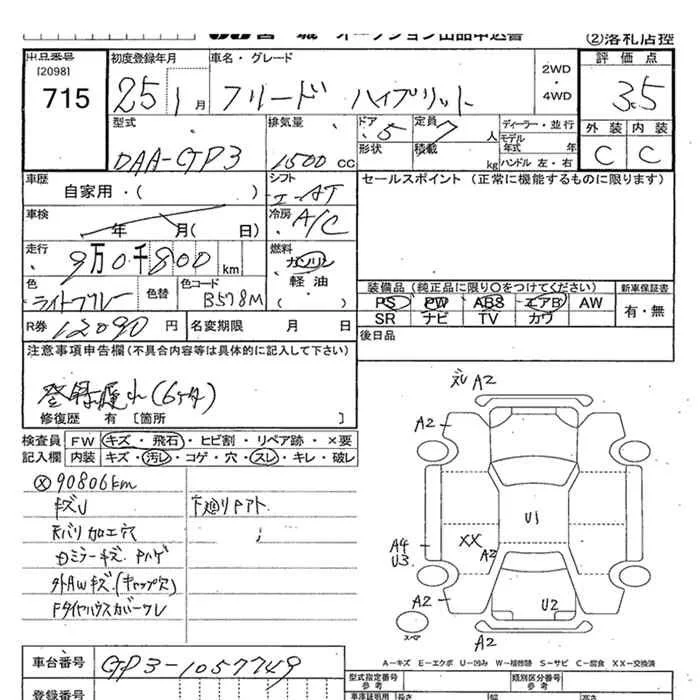 宮 城 オークション出品申込書 ②落札店控
出品番号 [2098] 715
初度登録年月 25 1月
車名・グレード フリード ハイブリット
2WD・4WD
評価点 3.5
外装 C 内装 C
型式 DAA-GP3
排気量 1500 cc
ドア 5 定員 7人
形状 積載 kg
ディーラー・並行
モデル年式 年
ハンドル 左・右
車歴 自家用・( )
シフト I-AT
セールスポイント (正常に機能するものに限ります)
車検 年 月( 日)
冷房 A/C
走行 9万0千800km
燃料 ガソリン 軽油 ( )
色 ライトブルー 色替 色コード B578M
装備品 (純正品に限り○をつけてください) 新車保証書
PS PW ABS エアB AW 有・無
SR ナビ TV カワ
R券 12090円 名変期限 月 日
後日品
注意事項申告欄(不具合内容等は具体的に記入して下さい)
登録遅れ(6ヶ月)
修復歴 有 [箇所 ]
検査員 FW キズ・飛石・ヒビ割・リペア跡・×要
記入欄 内装 キズ・汚レ・コゲ・穴・スレ・キレ・破レ
90806km
キズU 下廻りPアト
天バリ加工穴
Dミラーキズ Pハゲ
外AWキズ(キャップ欠)
Fタイヤハウスカバーワレ
ズレ A2
A2
U1
A4
U3
XX
A2
A2
U2
A2
スペア
A－キズ E－エクボ U－凹み W－補修跡 S－サビ C－腐食 XX－交換済
車台番号 GP3-1057749
登録番号
型式指定番号 参考
類別区分番号 参考
車庫証明用 長さ 幅 高さ